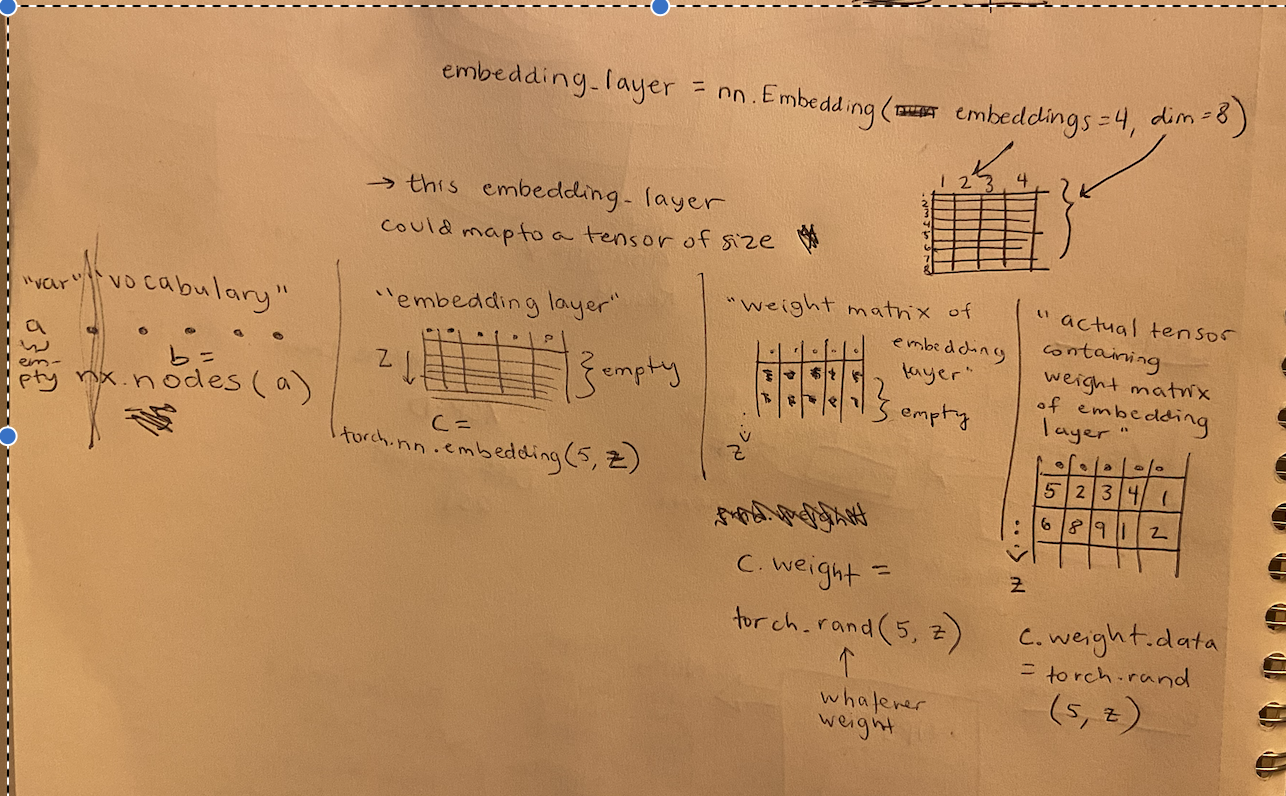 embedding_layer = nn.Embedding( embeddings=4, dim=8)
1 2 3 4
1
2
3
4
5
6
7
8
→ this embedding_layer
could map to a tensor of size
"var"
a
w
em-
pty
"vocabulary"
b =
nx.nodes(a)
"embedding layer"
z ↓
} empty
c =
torch.nn.embedding(5, z)
"weight matrix of
embedding
layer"
} empty
z
c.weight =
torch.rand(5, z)
↑
whatever
weight
"actual tensor
containing
weight matrix
of embedding
layer"
5 2 3 4 1
6 8 9 1 2
z
c.weight.data
= torch.rand
(5, z)